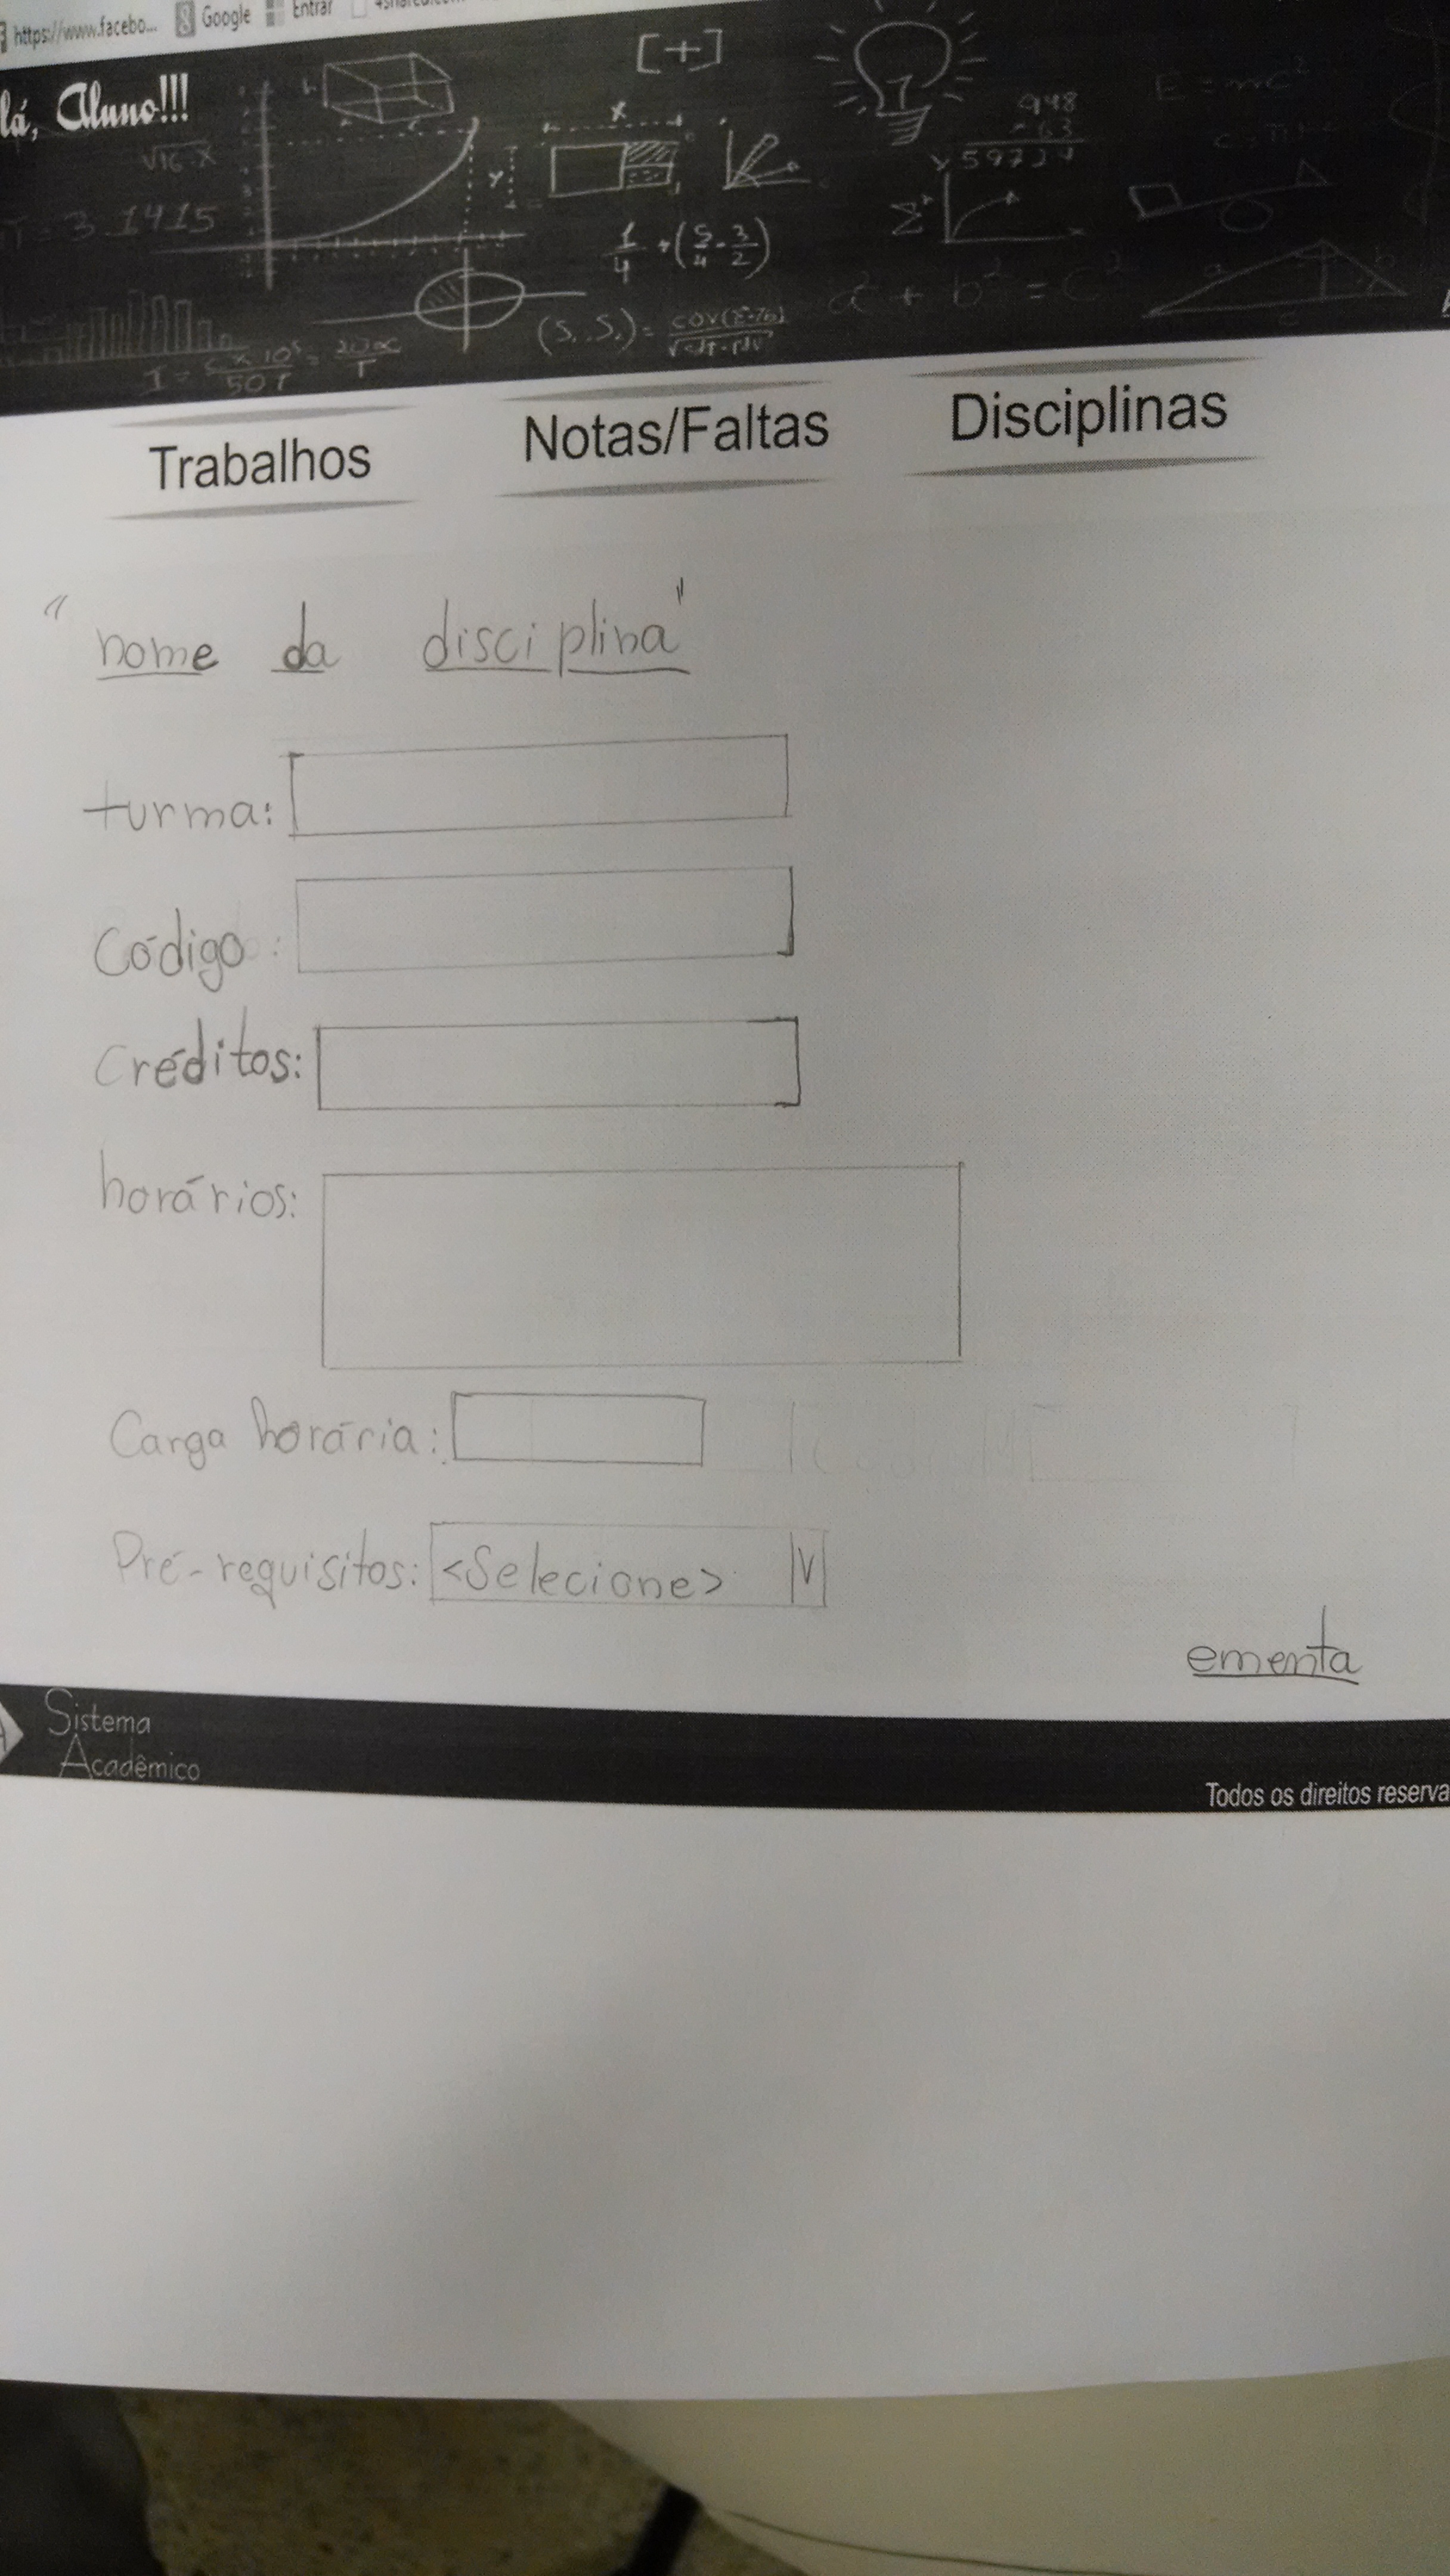 https://www.facebo... Google Entrar
lá, Aluno!!!
[+]
x
948
E = mc²
√16.x
59724
3.1415
y
Σ
1/4 + (5/4 - 3/2)
a² + b² = c²
Trabalhos Notas/Faltas Disciplinas
"nome da disciplina"
turma:
Código:
Créditos:
horários:
Carga horária:
Pré-requisitos: <Selecione> V
ementa
Sistema
Acadêmico
Todos os direitos reserva